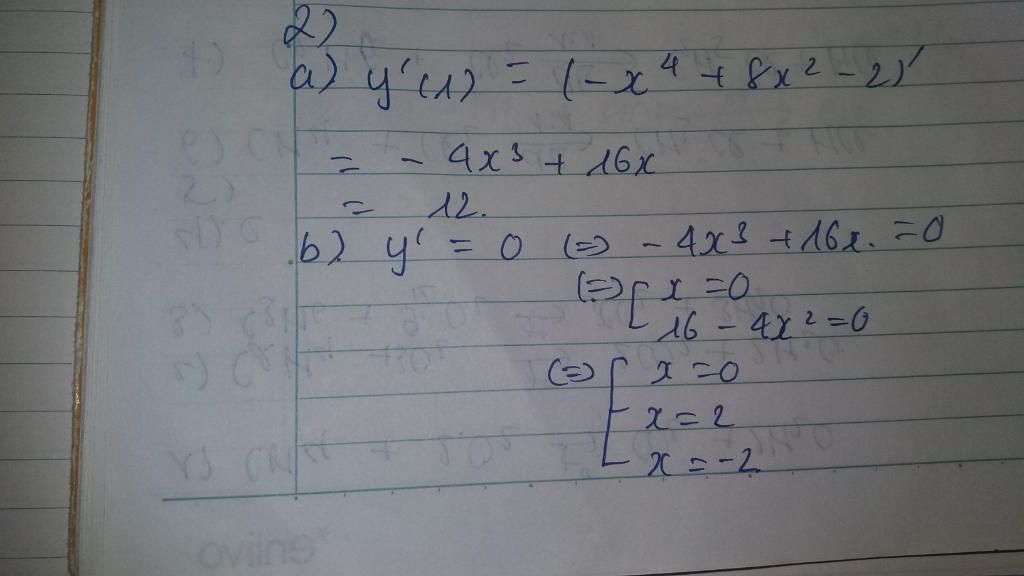 2)
a) y'(1) = (-x⁴ + 8x² - 2)'
= - 4x³ + 16x
= 12.
b) y' = 0 (=) - 4x³ + 16x. = 0
(=) [ x = 0
16 - 4x² = 0
(=) [ x = 0
x = 2
x = -2